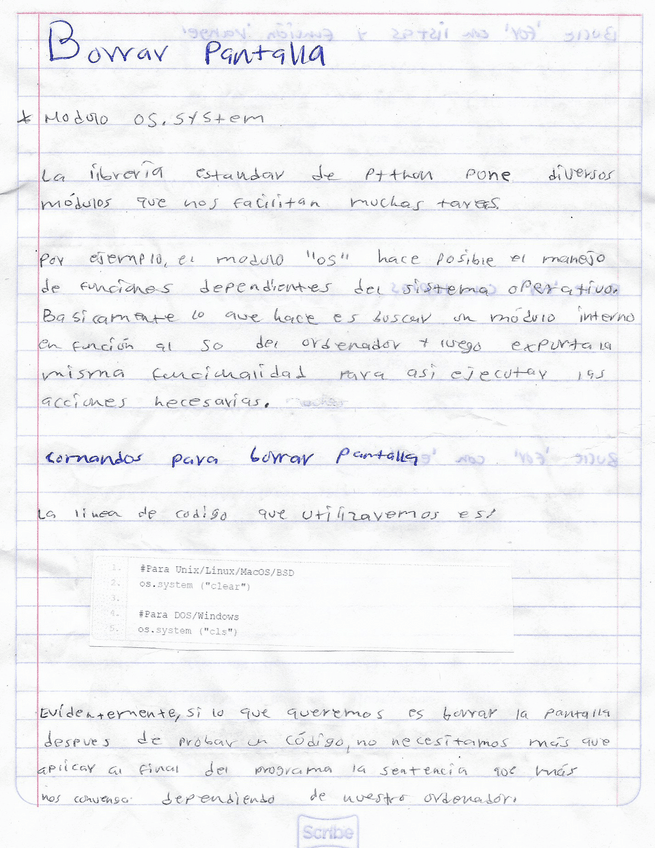 Borrar Pantalla
* Modulo os.system
La librería estandar de Python pone diversos
módulos que nos facilitan muchas tareas.
Por ejemplo, el modulo "os" hace posible el manejo
de funciones dependientes del sistema operativo.
Basicamente lo que hace es buscar un módulo interno
en función al SO del ordenador y luego exporta la
misma funcionalidad para asi ejecutar las
acciones necesarias.
Comandos para borrar Pantalla
La linea de codigo que utilizaremos es:
1. #Para Unix/Linux/MacOS/BSD
2. os.system ("clear")
3.
4. #Para DOS/Windows
5. os.system ("cls")
Evidentemente, si lo que queremos es borrar la pantalla
despues de probar un código, no necesitamos más que
aplicar al final del programa la sentencia que más
nos convenga dependiendo de nuestro ordenador.
Scribe